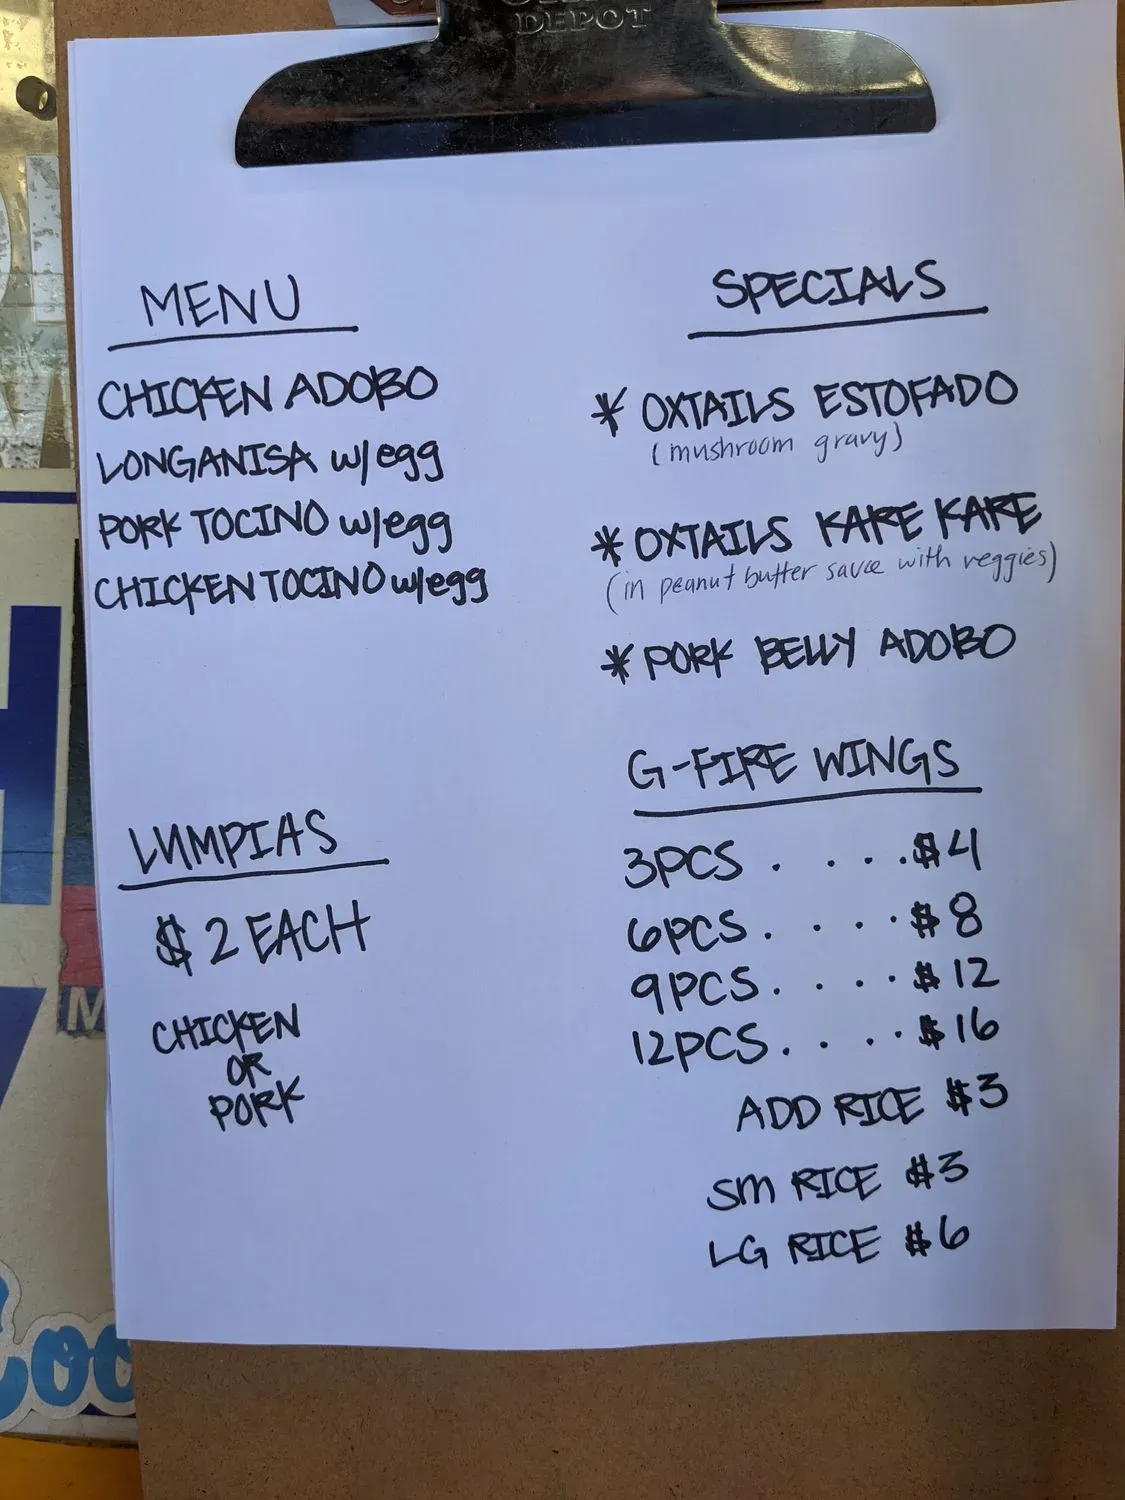 DEPOT
MENU
CHICKEN ADOBO
LONGANISA w/egg
PORK TOCINO w/egg
CHICKEN TOCINO w/egg
LUMPIAS
$2 EACH
CHICKEN
OR
PORK
SPECIALS
* OXTAILS ESTOFADO
(mushroom gravy)
* OXTAILS KARE KARE
(in peanut butter sauce with veggies)
* PORK BELLY ADOBO
G-FIRE WINGS
3PCS . . . . . $4
6PCS . . . . $8
9PCS . . . . $12
12PCS . . . . $16
ADD RICE $3
SM RICE $3
LG RICE $6